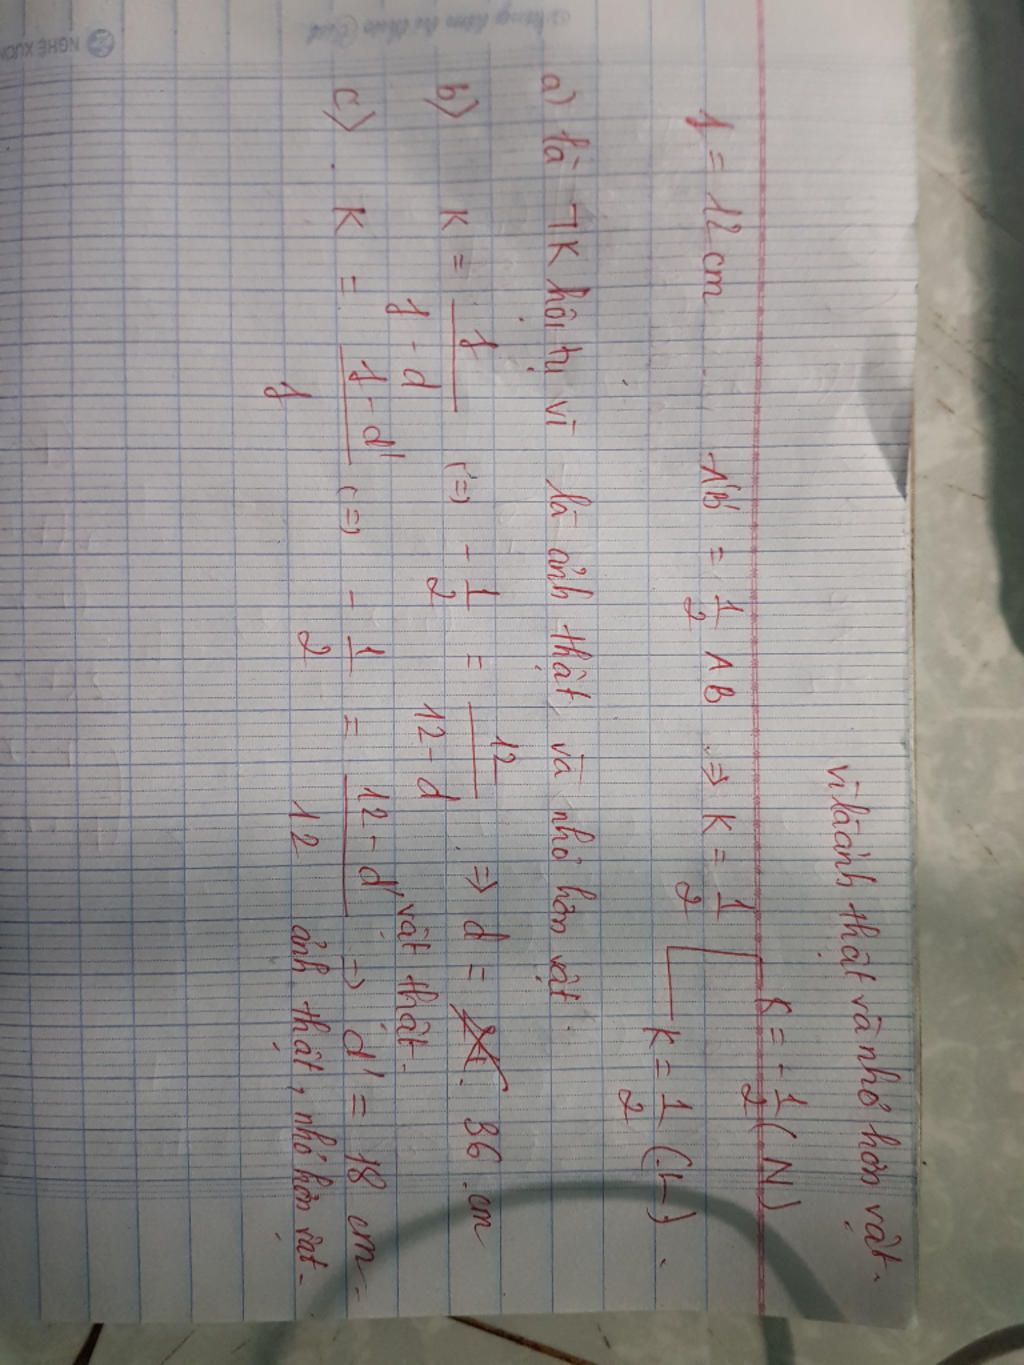 vì là ảnh thật và nhỏ hơn vật.
K = - 1/2 ( N )
f = 12 cm A'B' = 1/2 AB => K = 1/2
K = 1/2 ( L ) .
a) là TK hội tụ vì là ảnh thật, và nhỏ hơn vật.
b) K = f / f - d (=) - 1/2 = 12 / 12 - d => d = 36 cm
vật thật.
c) K = f - d' / f (=) - 1/2 = 12 - d' / 12 => d' = 18 cm -
ảnh thật, nhỏ hơn vật -
NGHÊ XUÂN